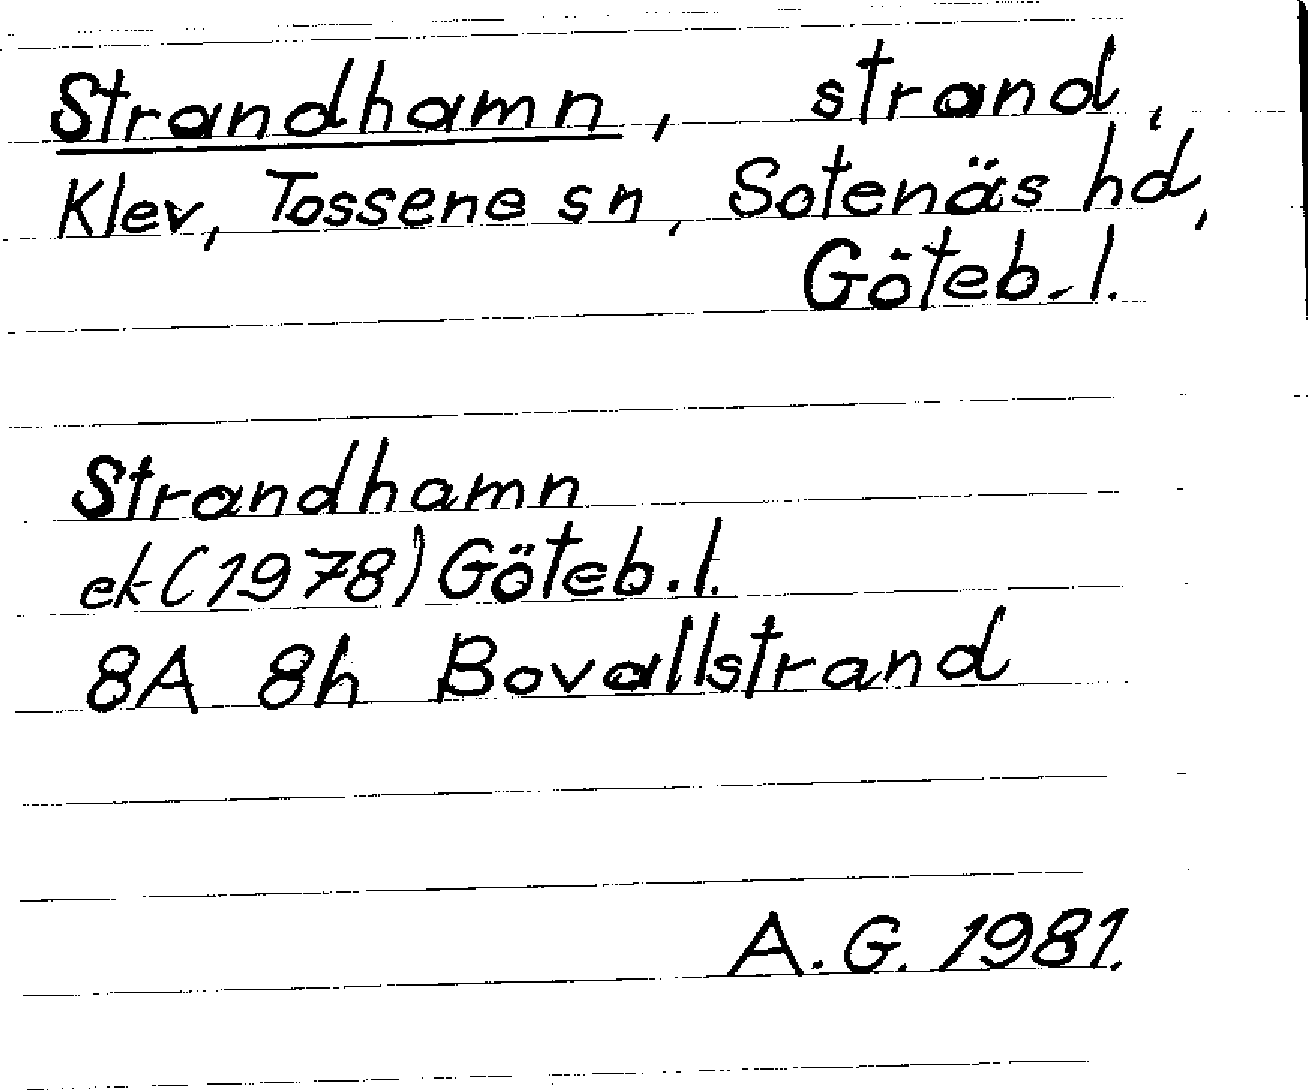 Strandhamn, strand,
Klev, Tossene sn, Sotenäs hd,
Göteb. l.
Strandhamn
ek (1978) Göteb. l.
8A 8h Bovallstrand
A. G. 1981.